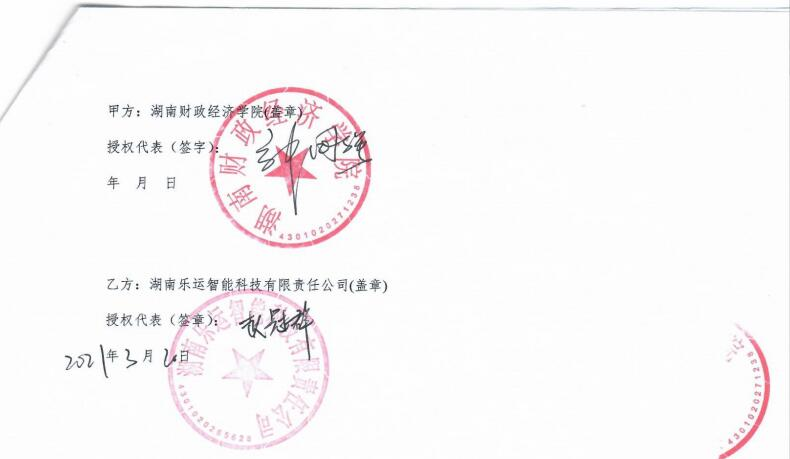 甲方：湖南财政经济学院(盖章)
湖南财政经济学院
授权代表（签字）：
年 月 日
4301020271238
乙方：湖南乐运智能科技有限责任公司(盖章)
湖南乐运智能科技有限责任公司
授权代表（签章）：
2021年3月20日
4301020265620
4301020271238